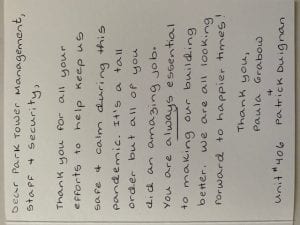 Dear Park Tower Management,
Staff & Security,
Thank you for all your
efforts to help keep us
safe & calm during this
pandemic. It's a tall
order but all of you
did an amazing job.
You are always essential
to making our building
better. We are all looking
forward to happier times!
Thank you,
Paula Grabow
+
Patrick Duignan
Unit #406